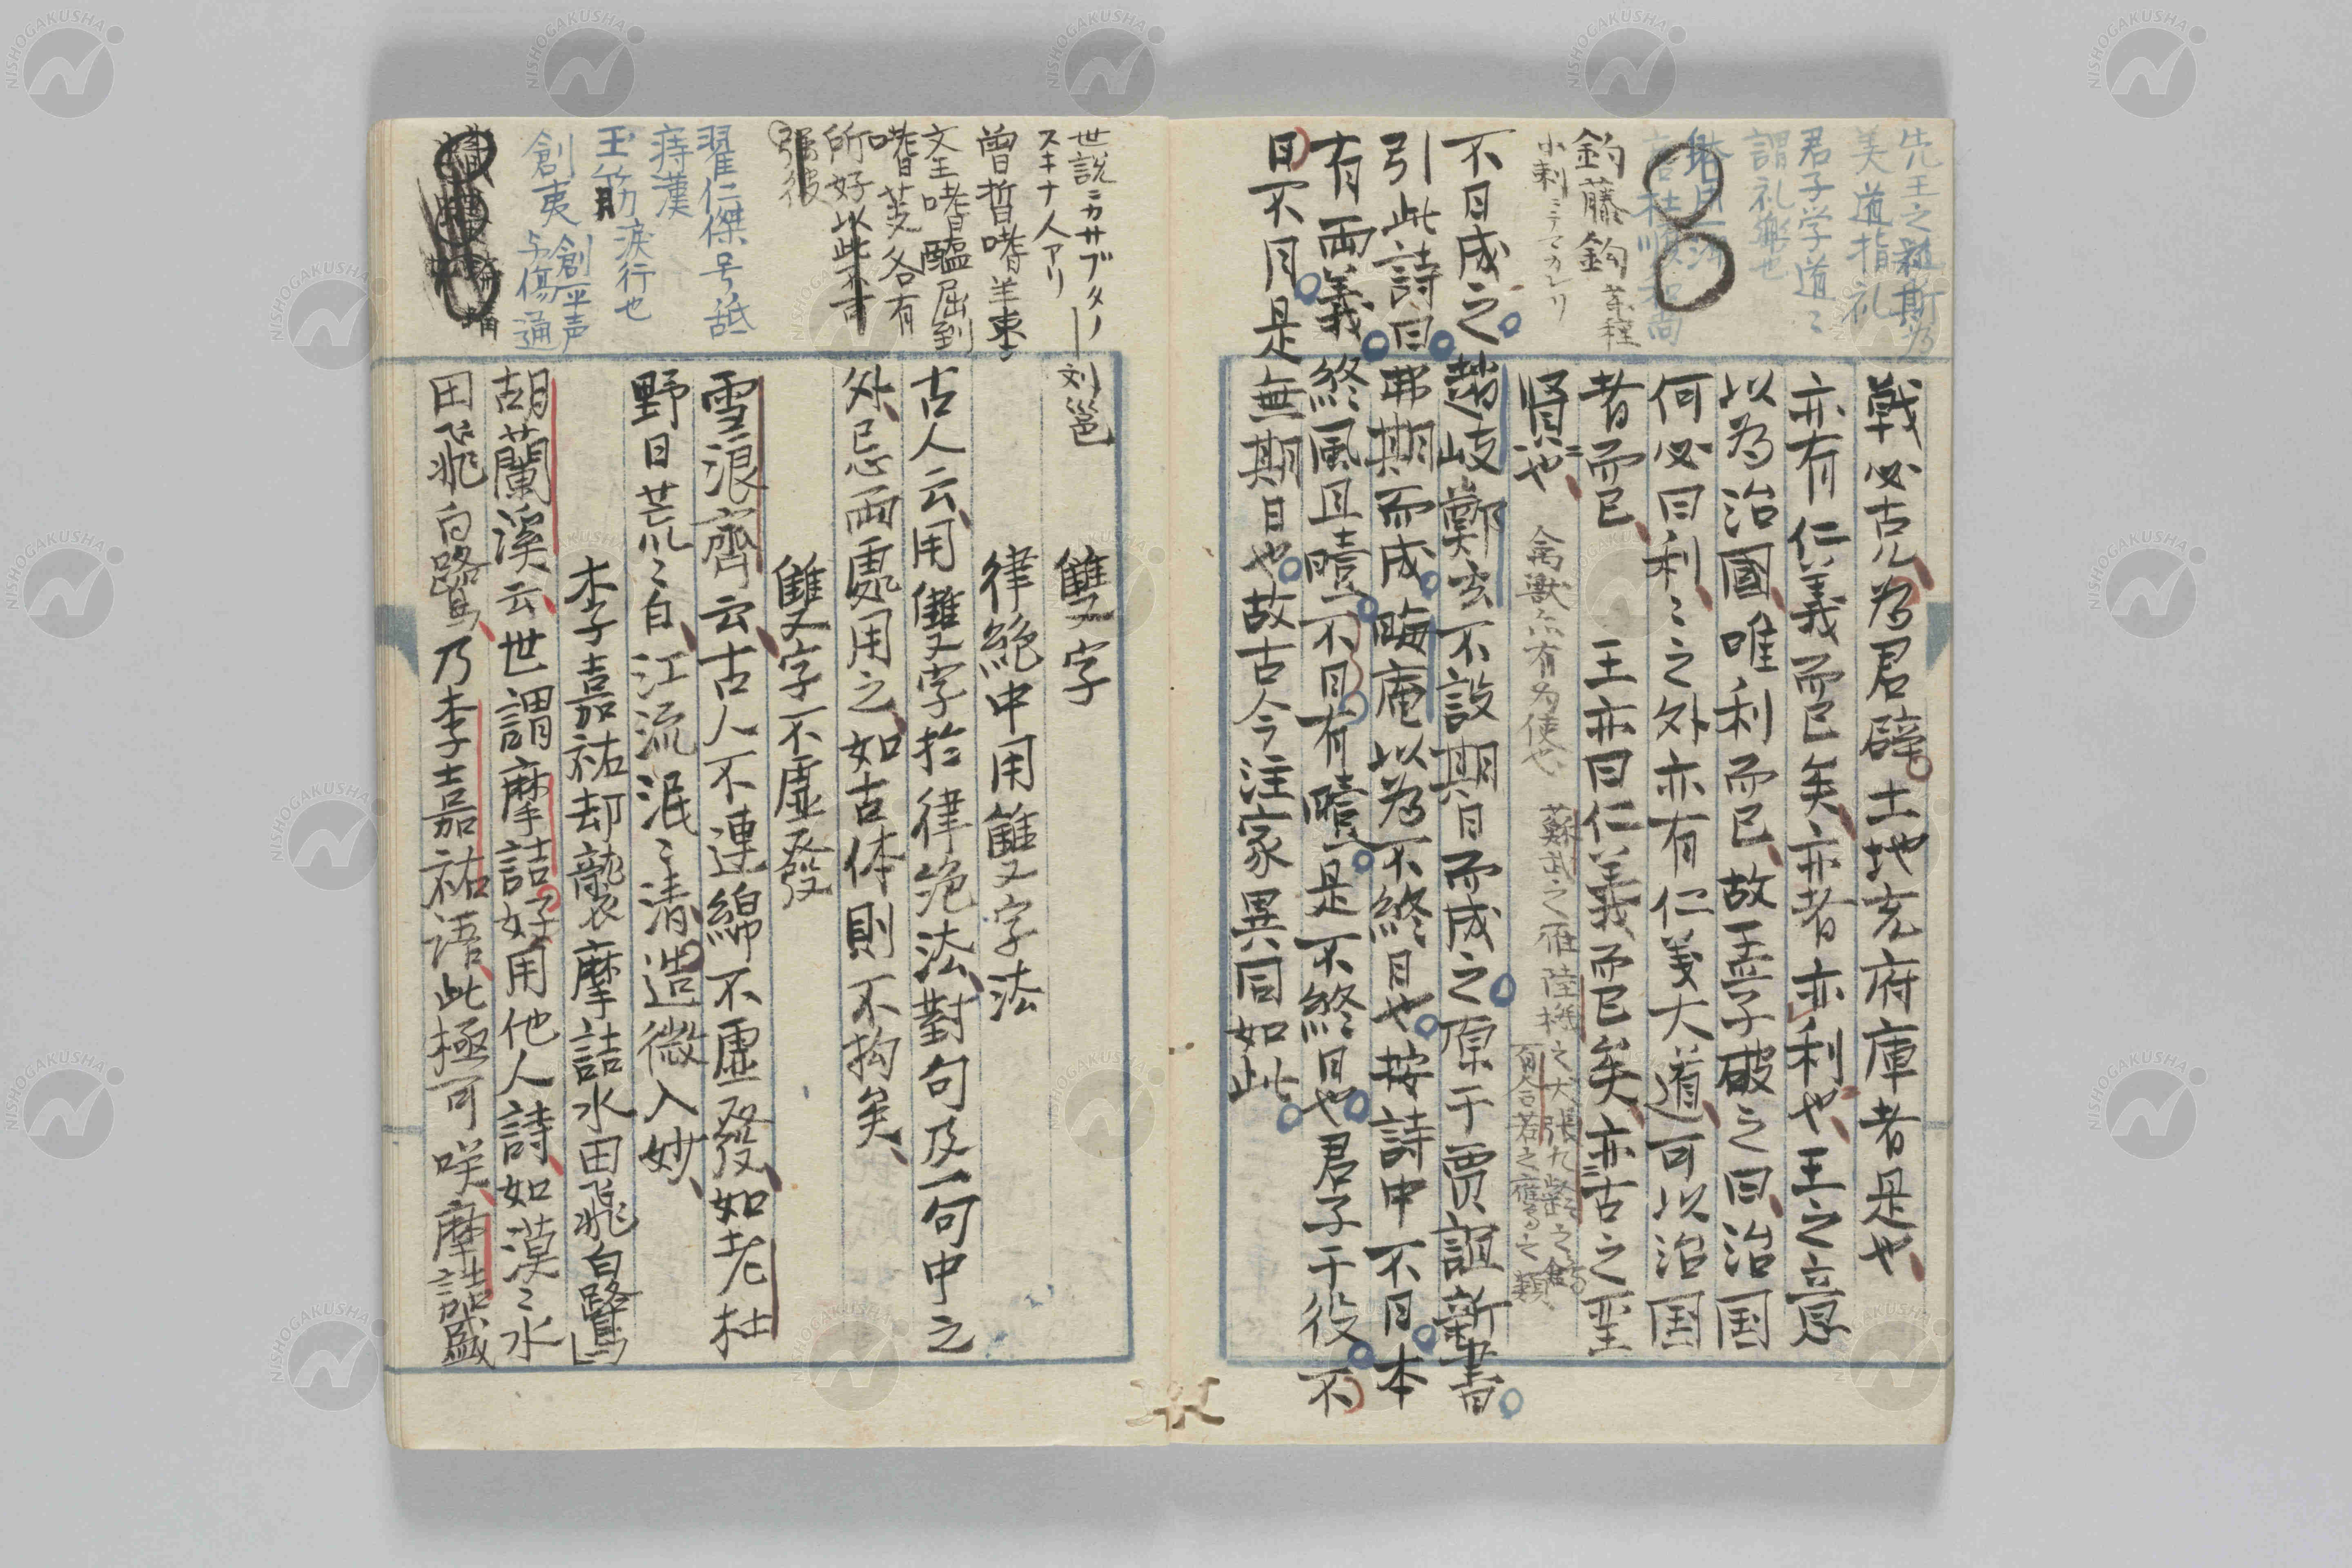 先王之道斯為
美道指礼
君子学道〻
謂礼樂也
釣藤鈎
戰必克為君辟土地充府庫者是也
亦有仁義而已矣亦者亦利也王之意
以為治國唯利而已故孟子破之曰治国
何必曰利〻之外亦有仁義大道可以治国
者而已 王亦曰仁義而已矣亦古之聖
賢也
禽獣亦有為使也 蘇武之雁陸機之犬張九齢之
不日成之趙岐鄭玄不設期日而成之原于賈誼新書
引此詩曰弗期而成晦庵以為不終日也按詩中不日本
有両義終風且曀不日有曀是不終日也君子于役不
日不月是無期日也故古今注家異同如此
世説ニカサブタノ 刘邕
スキナ人アリ
曽晳嗜羊棗
文王嗜 屈到
嗜芰各有
所好以此不可
翟仁傑号舐
痔漢
玉筋淚行也
創夷 創平声
与傷通
雙字
律絶中用雙字法
古人云用雙字於律絶法對句及一句中之
外忌両處用之如古体則不拘矣
雙字不虚發
雪浪齊云古人不連綿不虚發如老杜
野日荒〻白江流泯〻清造微入妙
李嘉祐却襲摩詰水田飛白鷺
胡蘭溪云世謂摩詰好用他人詩如漠〻水
田飛白鷺乃李嘉祐語此極可咲摩詰盛
NISHOGAKUSHA